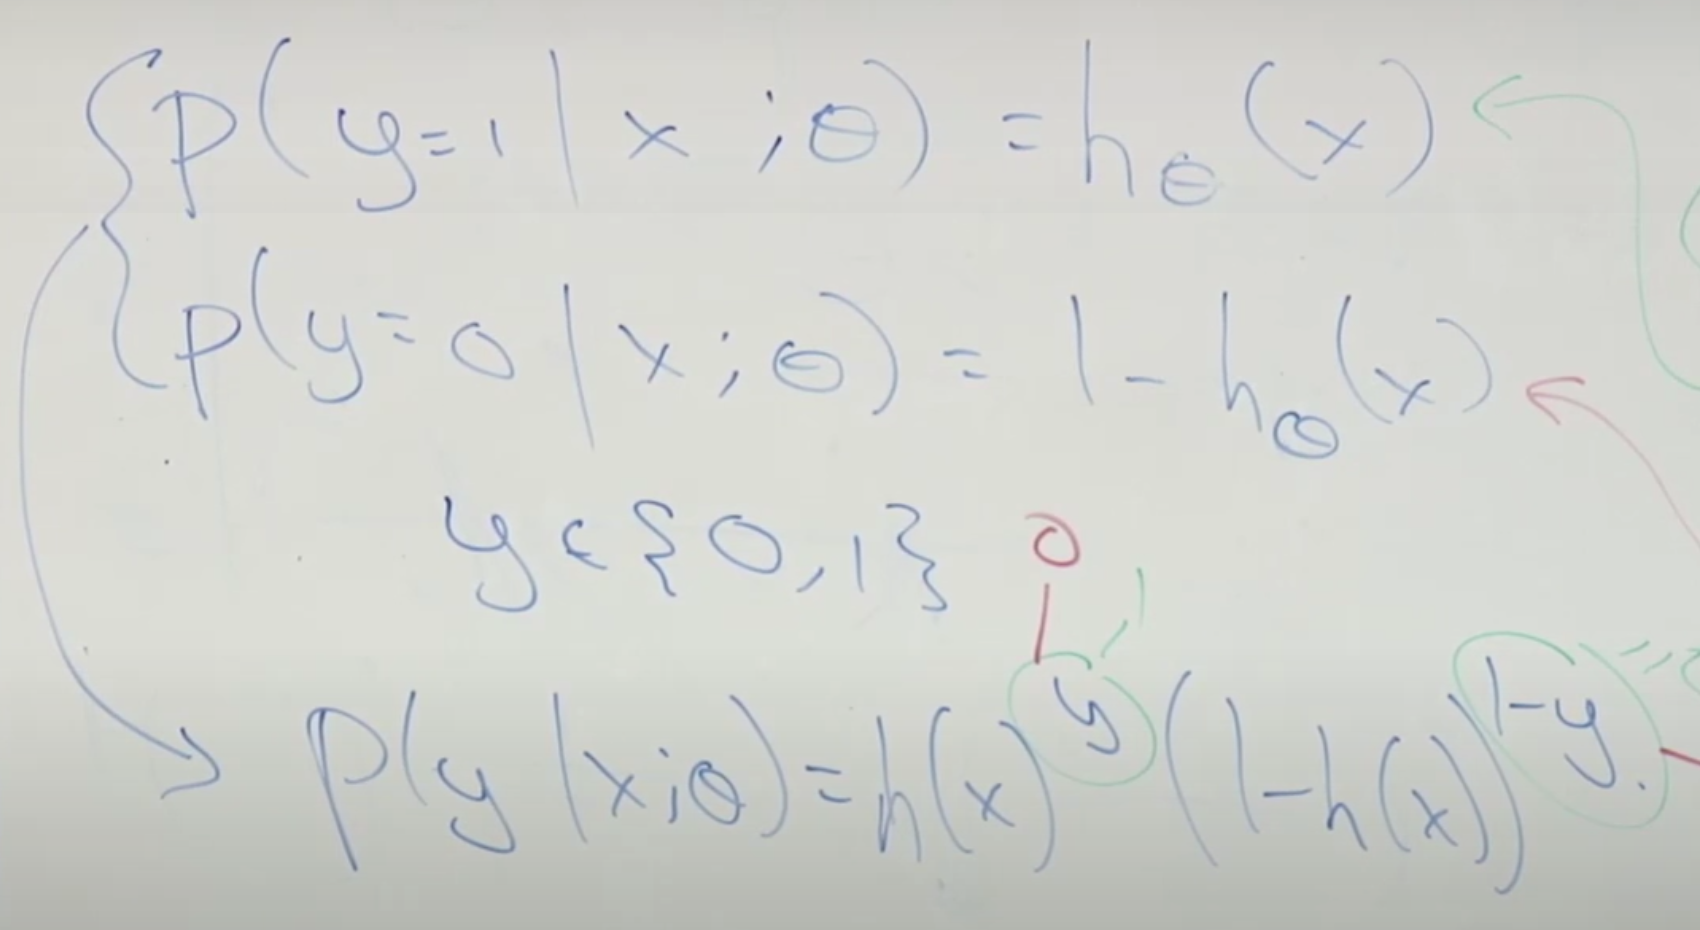 p(y=1|x;θ) = hθ(x)
p(y=0|x;θ) = 1-hθ(x)
y∈{0,1} 0
1
p(y|x;θ) = h(x)^y (1-h(x))^1-y.